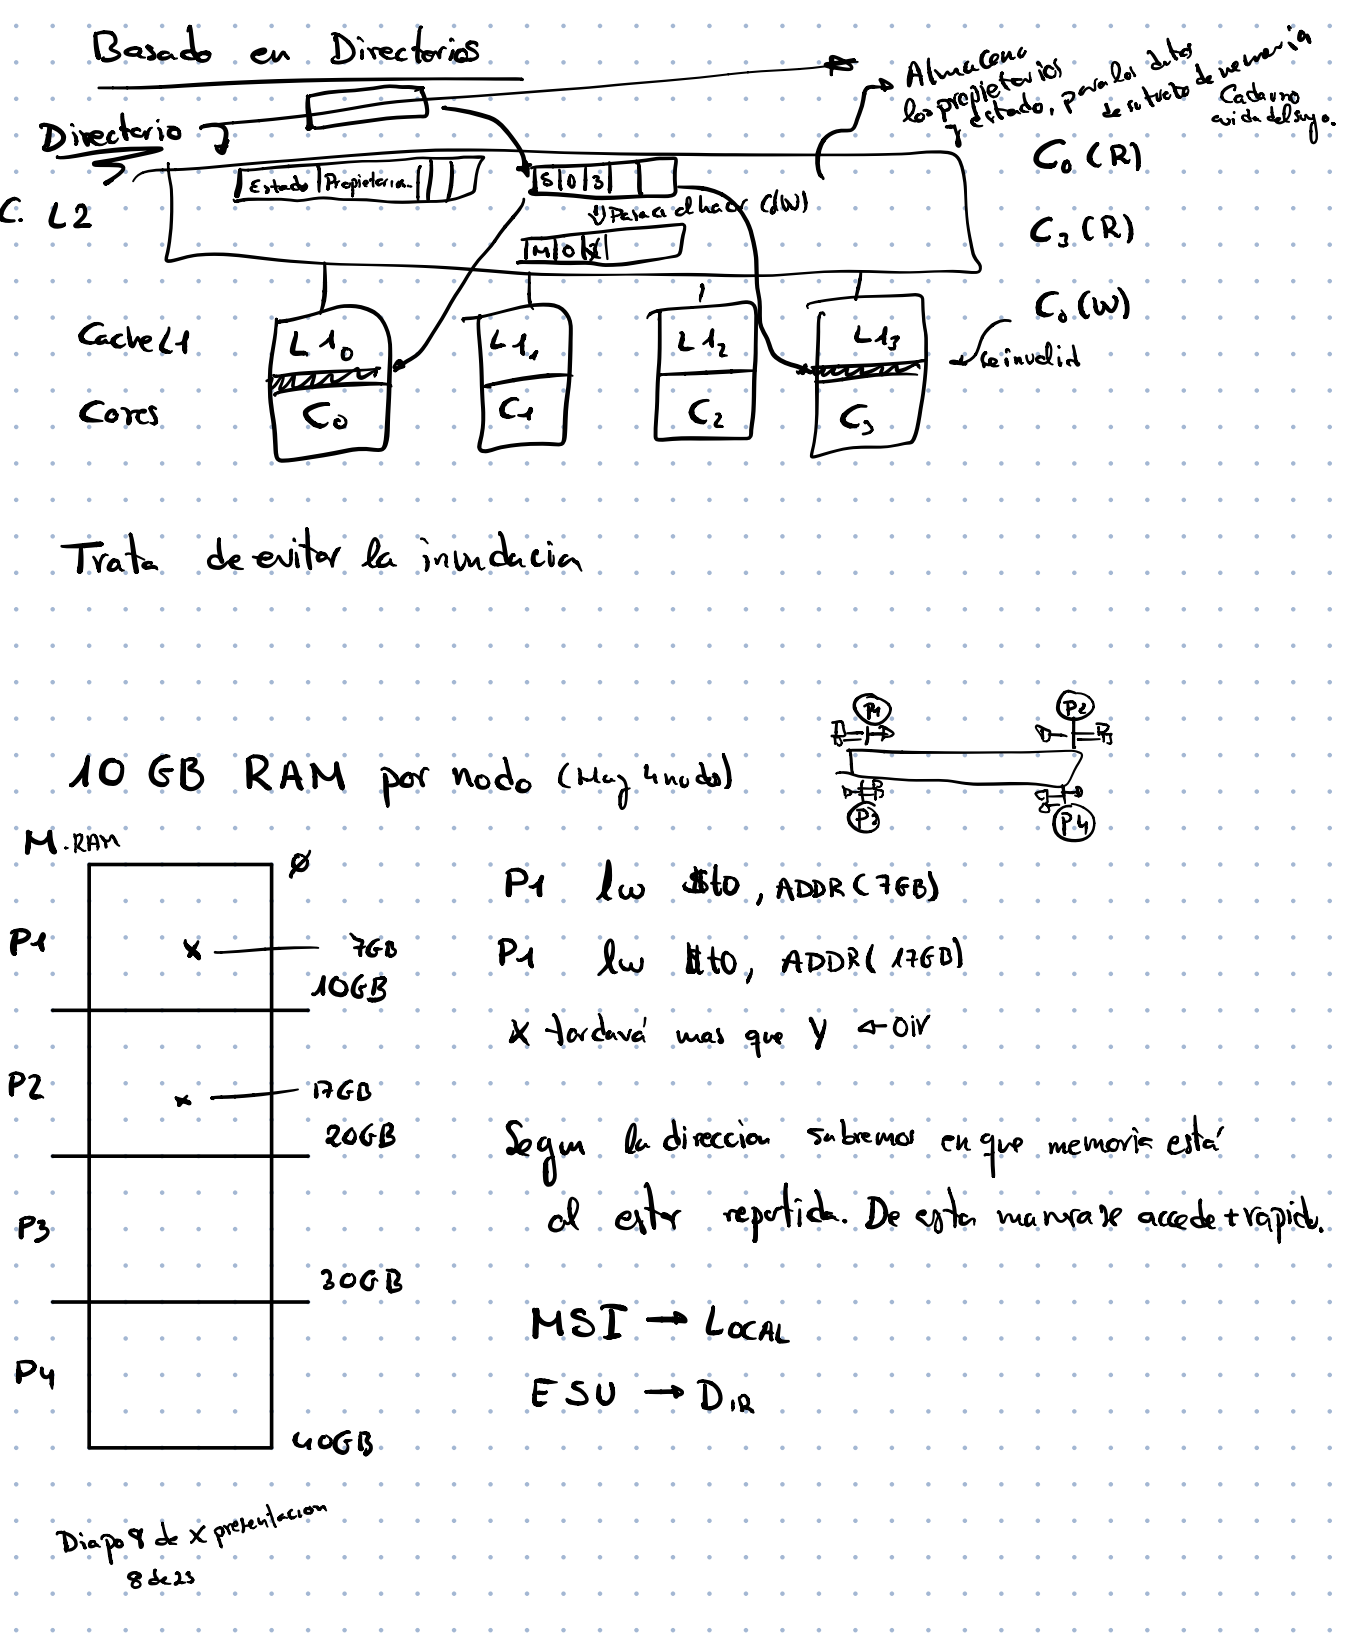 Basado en Directorios
Almacena
los propietarios
y estado, para los datos
de su trozo de memoria
Cada uno
cuida del suyo.
Directorio
Estado Propietarios
S 0 3
C. L2
Pasa a al hacer (W)
M 0
C0 (R)
C3 (R)
C0 (W)
Se invalid
Cache L1
L10
L11
L12
L13
Cores
C0
C1
C2
C3
Trata de evitar la inundacion
P1
P2
P3
P4
10 GB RAM por nodo (Hay 4 nodos)
M. RAM
Ø
P1
x
7GB
10GB
P2
x
17GB
20GB
P3
30GB
P4
40GB
P1 lw $t0, ADDR(7GB)
P1 lw $t0, ADDR(17GB)
X tardará mas que Y
Segun la direccion sabremos en que memoria está
al estar repartida. De esta manera se accede + rapido.
MSI → LOCAL
ESU → DIR
Diapo 8 de x presentacion
8 de 23